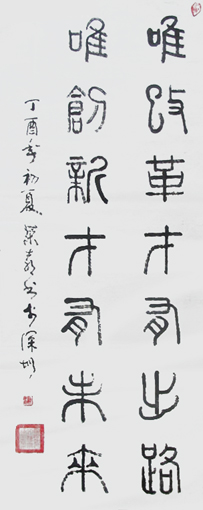 唯改革才有出路
唯創新才有未來
丁酉年初夏榮嘉書於深圳